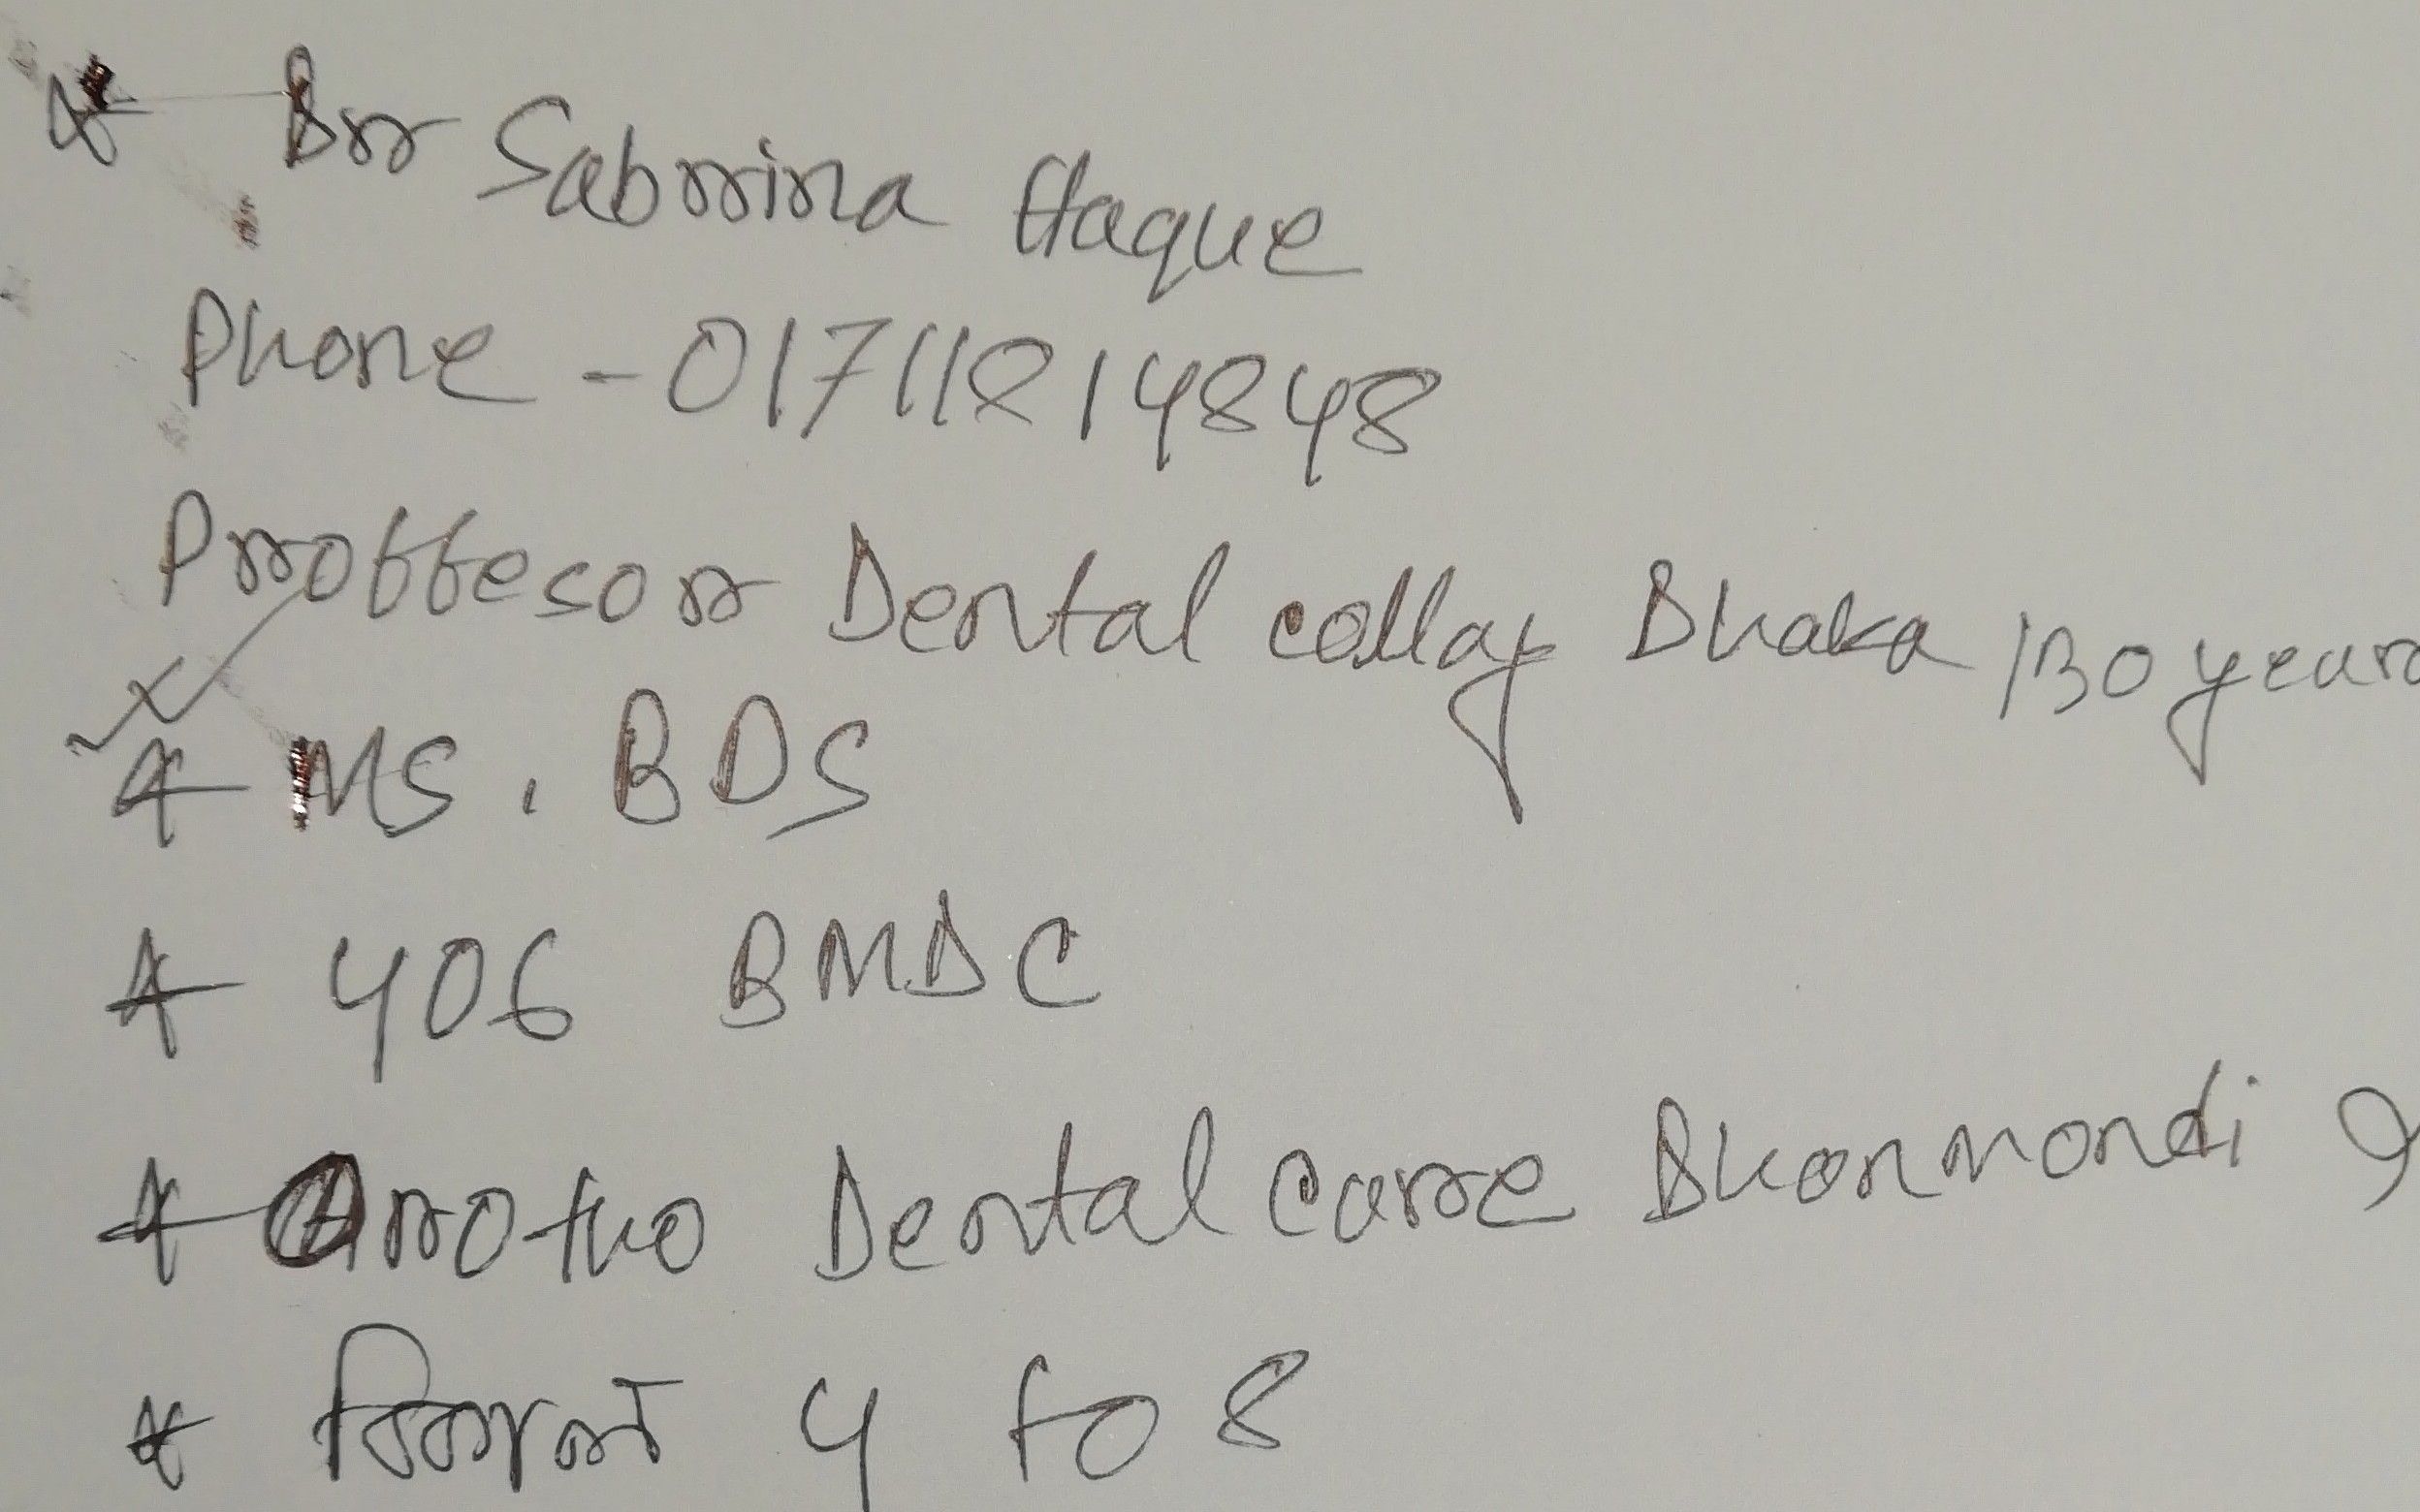 * Dr Sabrina Haque
Phone - 01711814848
Proffesor Dental collag Dhaka / 30 years
* MS, BDS
* 406 BMDC
* Orotho Dental care Dhanmondi 9
* বিকাল 4 to 8